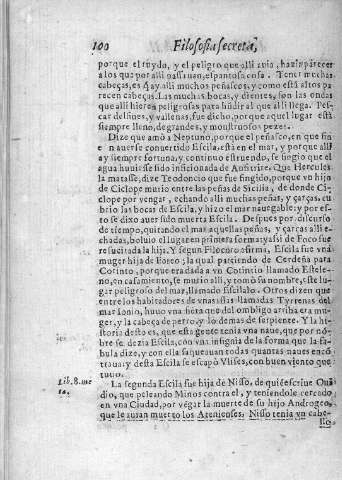 100 Filosofia secreta,
porque el ruydo, y el peligro que alli auia, hazia parecer
a los que por alli passauan, espantosa cosa. Tener muchas
cabeças, es q̃ ay alli muchos peñascos, y como està altos pa-
recen cabeças. Las muchas bocas, y dientes, son las ondas
que alli hieren peligrosas para hũdir al que alli llega. Pes-
car delfines, y vallenas, fue dicho, porque aquel lugar està
siempre lleno, de grandes, y monstruosos pezes.
Dize que amò a Neptuno, porque el peñasco, en que fin
en auerse conuertido Escila, està en el mar, y porque alli
ay siempre fortuna, y continuo estruendo, se fingio que el
agua huuiesse sido inficionada de Anfitrite. Que Hercules
la matasse, dize Teodoncio que fue fingido, porque vn hijo
de Ciclope murio entre las peñas de Sicilia, de donde Ci-
clope por vengar, echando alli muchas peñas, y çarças, cu-
brio las bocas de Escila, y hizo el mar nauegable: y por es-
to se dixo auer sido muerta Escila. Despues por discurso
de tiempo, quitando el mar aquellas peñas, y çarças alli e-
chadas, boluio el lugar en primera forma y assi de Foco fue
resucitada la hija. Y segun afirma, Escila fue vna
muger hija de Foseo; la qual partiendo de Cerdeña para
Corinto, porque era dada a vn Cotintio llamado Estele-
no, en casamiento, se murio alli, y tomò su nombre, este lu-
gar peligroso del mar, llamado Escilaceo. Otros dizen que
entre los habitadores de vnas islas llamadas Tyrrenas del
mar Ionio, huuo vna fiera que del ombligo arriba era mu-
ger, y la cabeça de perro, y lo demas de serpiente. Y la his-
toria desto es, que esta gente tenia vna naue, que por nõ-
bre se dezia Escila, con vna insignia de la forma que la fa-
bula dize, y con ella saqueauan todas quantas naues encõ-
trauã: y desta Escila se escapò Vlises, con buen viento que
tuuo.
Lib. 8. me
ta.
La segunda Escila fue hija de Nisso, de quiẽ escriue Oui-
dio, que peleando Minos contra el, y teniendole cercado
en vna Ciudad, por vẽgar la muerte de su hijo Androgeo,
que le auian muerto los Atenienses: Nisso tenia vn cabe-
llo